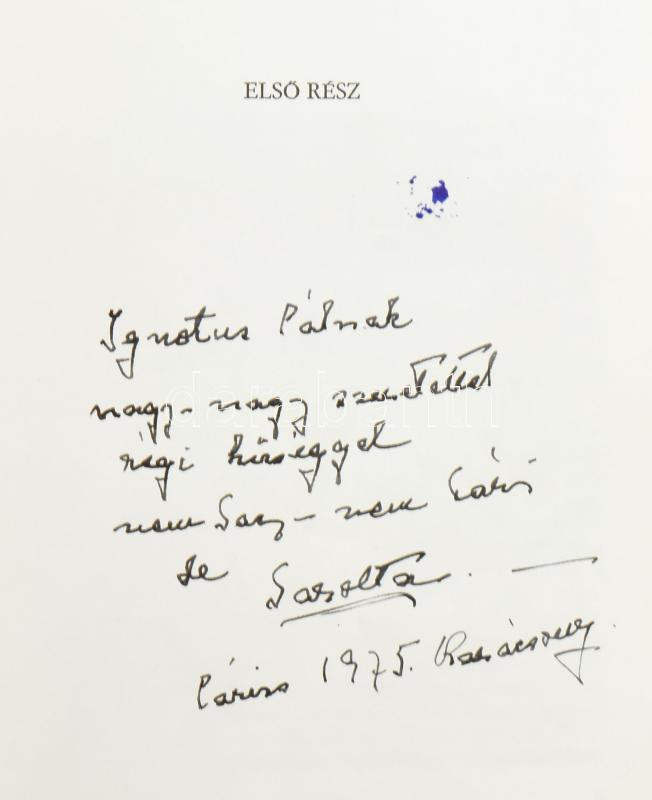 ELSŐ RÉSZ
Ignotus Pálnak
nagy-nagy szeretettel
darabanth
régi hűséggel
nem Sary – nem
de Sarolta.
Páris 1975. Karácsony.